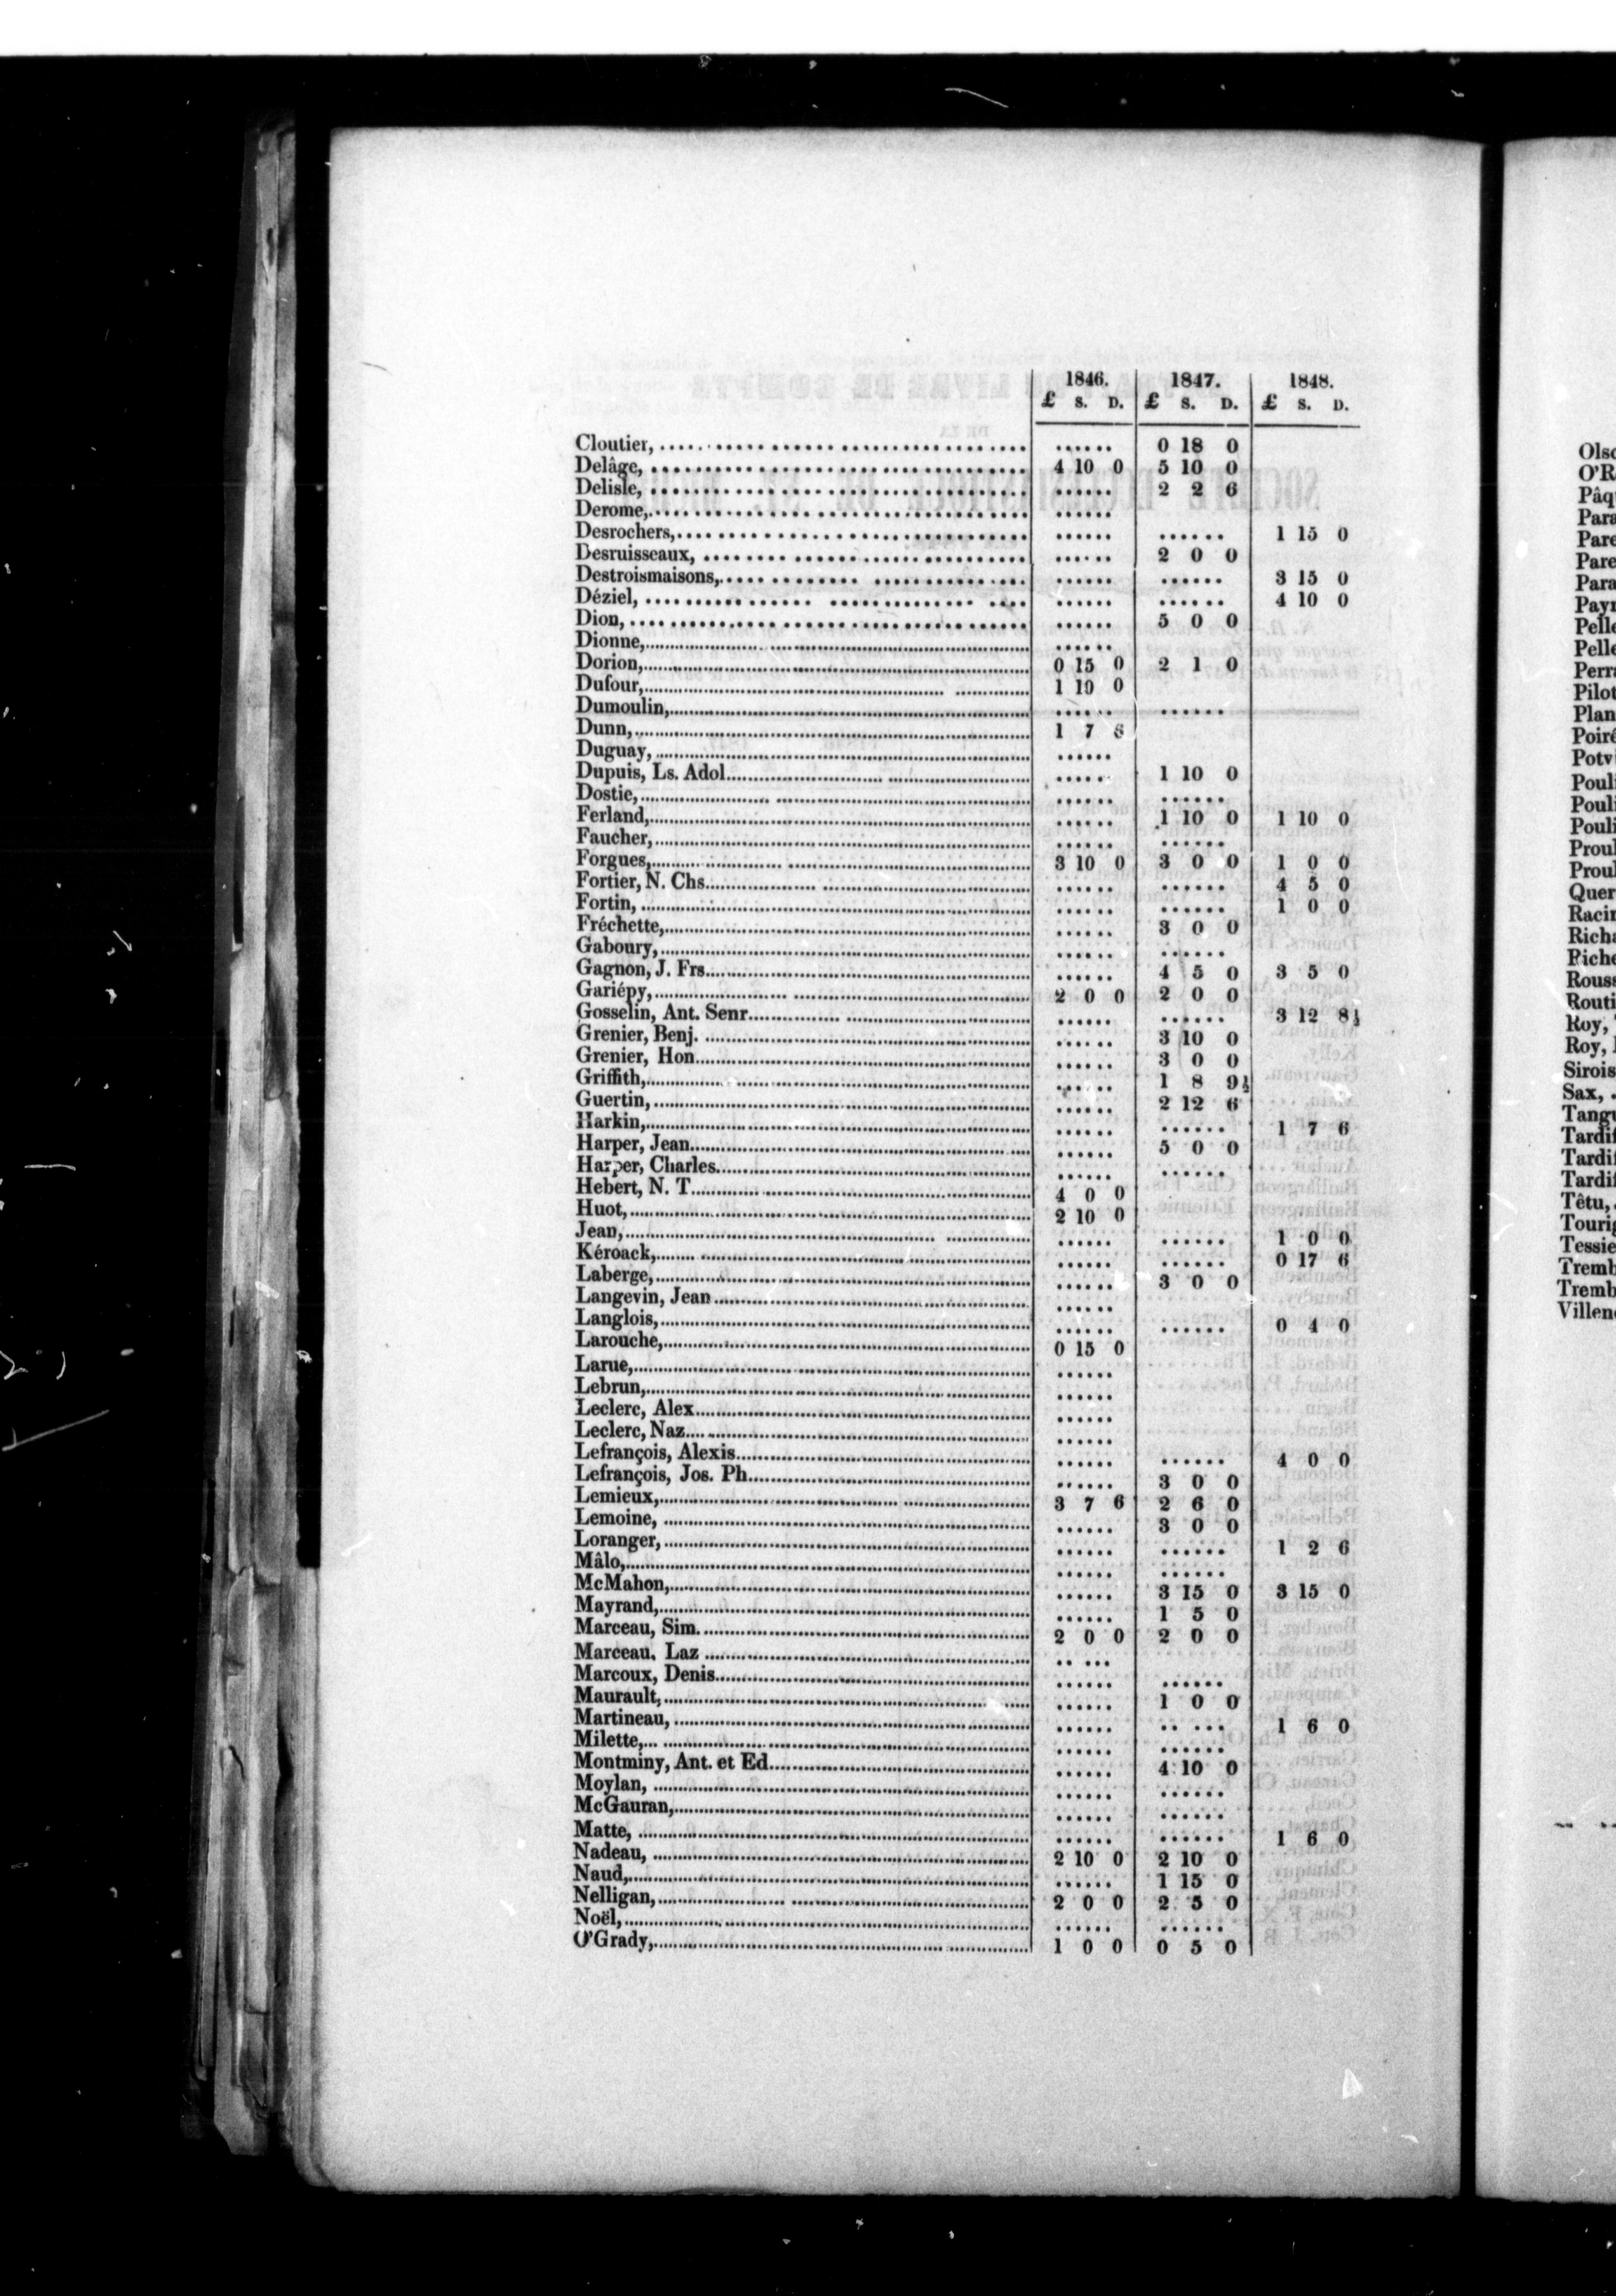 1846. 1847. 1848.
£ S. D. £ S. D. £ S. D.
Cloutier, ...... 0 18 0
Delâge, 4 10 0 5 10 0
Delisle, ...... 2 2 6
Derome, ......
Desrochers, ...... ...... 1 15 0
Desruisseaux, ...... 2 0 0
Destroismaisons, ...... ...... 3 15 0
Déziel, ...... ...... 4 10 0
Dion, ...... 5 0 0
Dionne, ......
Dorion, 0 15 0 2 1 0
Dufour, 1 10 0
Dumoulin, ...... ......
Dunn, 1 7 6
Duguay, ......
Dupuis, Ls. Adol. ...... 1 10 0
Dostie, ...... ......
Ferland, ...... 1 10 0 1 10 0
Faucher, ...... ......
Forgues, 3 10 0 3 0 0 1 0 0
Fortier, N. Chs. ...... ...... 4 5 0
Fortin, ...... ...... 1 0 0
Fréchette, ...... 3 0 0
Gaboury, ...... ......
Gagnon, J. Frs. ...... 4 5 0 3 5 0
Gariépy, 2 0 0 2 0 0
Gosselin, Ant. Senr. ...... ...... 3 12 8½
Grenier, Benj. ...... 3 10 0
Grenier, Hon. ...... 3 0 0
Griffith, ...... 1 8 9½
Guertin, ...... 2 12 6
Harkin, ...... ...... 1 7 6
Harper, Jean ...... 5 0 0
Harper, Charles ...... ......
Hebert, N. T. 4 0 0
Huot, 2 10 0
Jean, ...... ...... 1 0 0
Kéroack, ...... ...... 0 17 6
Laberge, ...... 3 0 0
Langevin, Jean ......
Langlois, ...... ...... 0 4 0
Larouche, 0 15 0
Larue, ......
Lebrun, ......
Leclerc, Alex. ......
Leclerc, Naz. ......
Lefrançois, Alexis ...... ...... 4 0 0
Lefrançois, Jos. Ph. ...... 3 0 0
Lemieux, 3 7 6 2 6 0
Lemoine, ...... 3 0 0
Loranger, ...... ...... 1 2 6
Mâlo, ...... ......
McMahon, ...... 3 15 0 3 15 0
Mayrand, ...... 1 5 0
Marceau, Sim. 2 0 0 2 0 0
Marceau, Laz ......
Marcoux, Denis ...... ......
Maurault, ...... 1 0 0
Martineau, ...... ...... 1 6 0
Milette, ...... ......
Montminy, Ant. et Ed. ...... 4 10 0
Moylan, ...... ......
McGauran, ...... ......
Matte, ...... ...... 1 6 0
Nadeau, 2 10 0 2 10 0
Naud, ...... 1 15 0
Nelligan, 2 0 0 2 5 0
Noël, ...... ......
O'Grady, 1 0 0 0 5 0